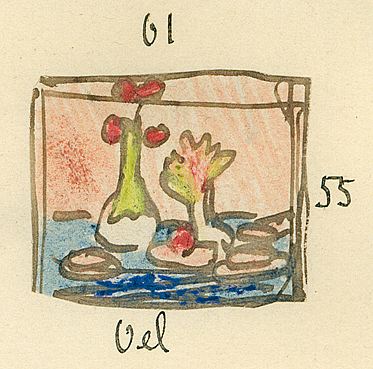 61
55
Oel